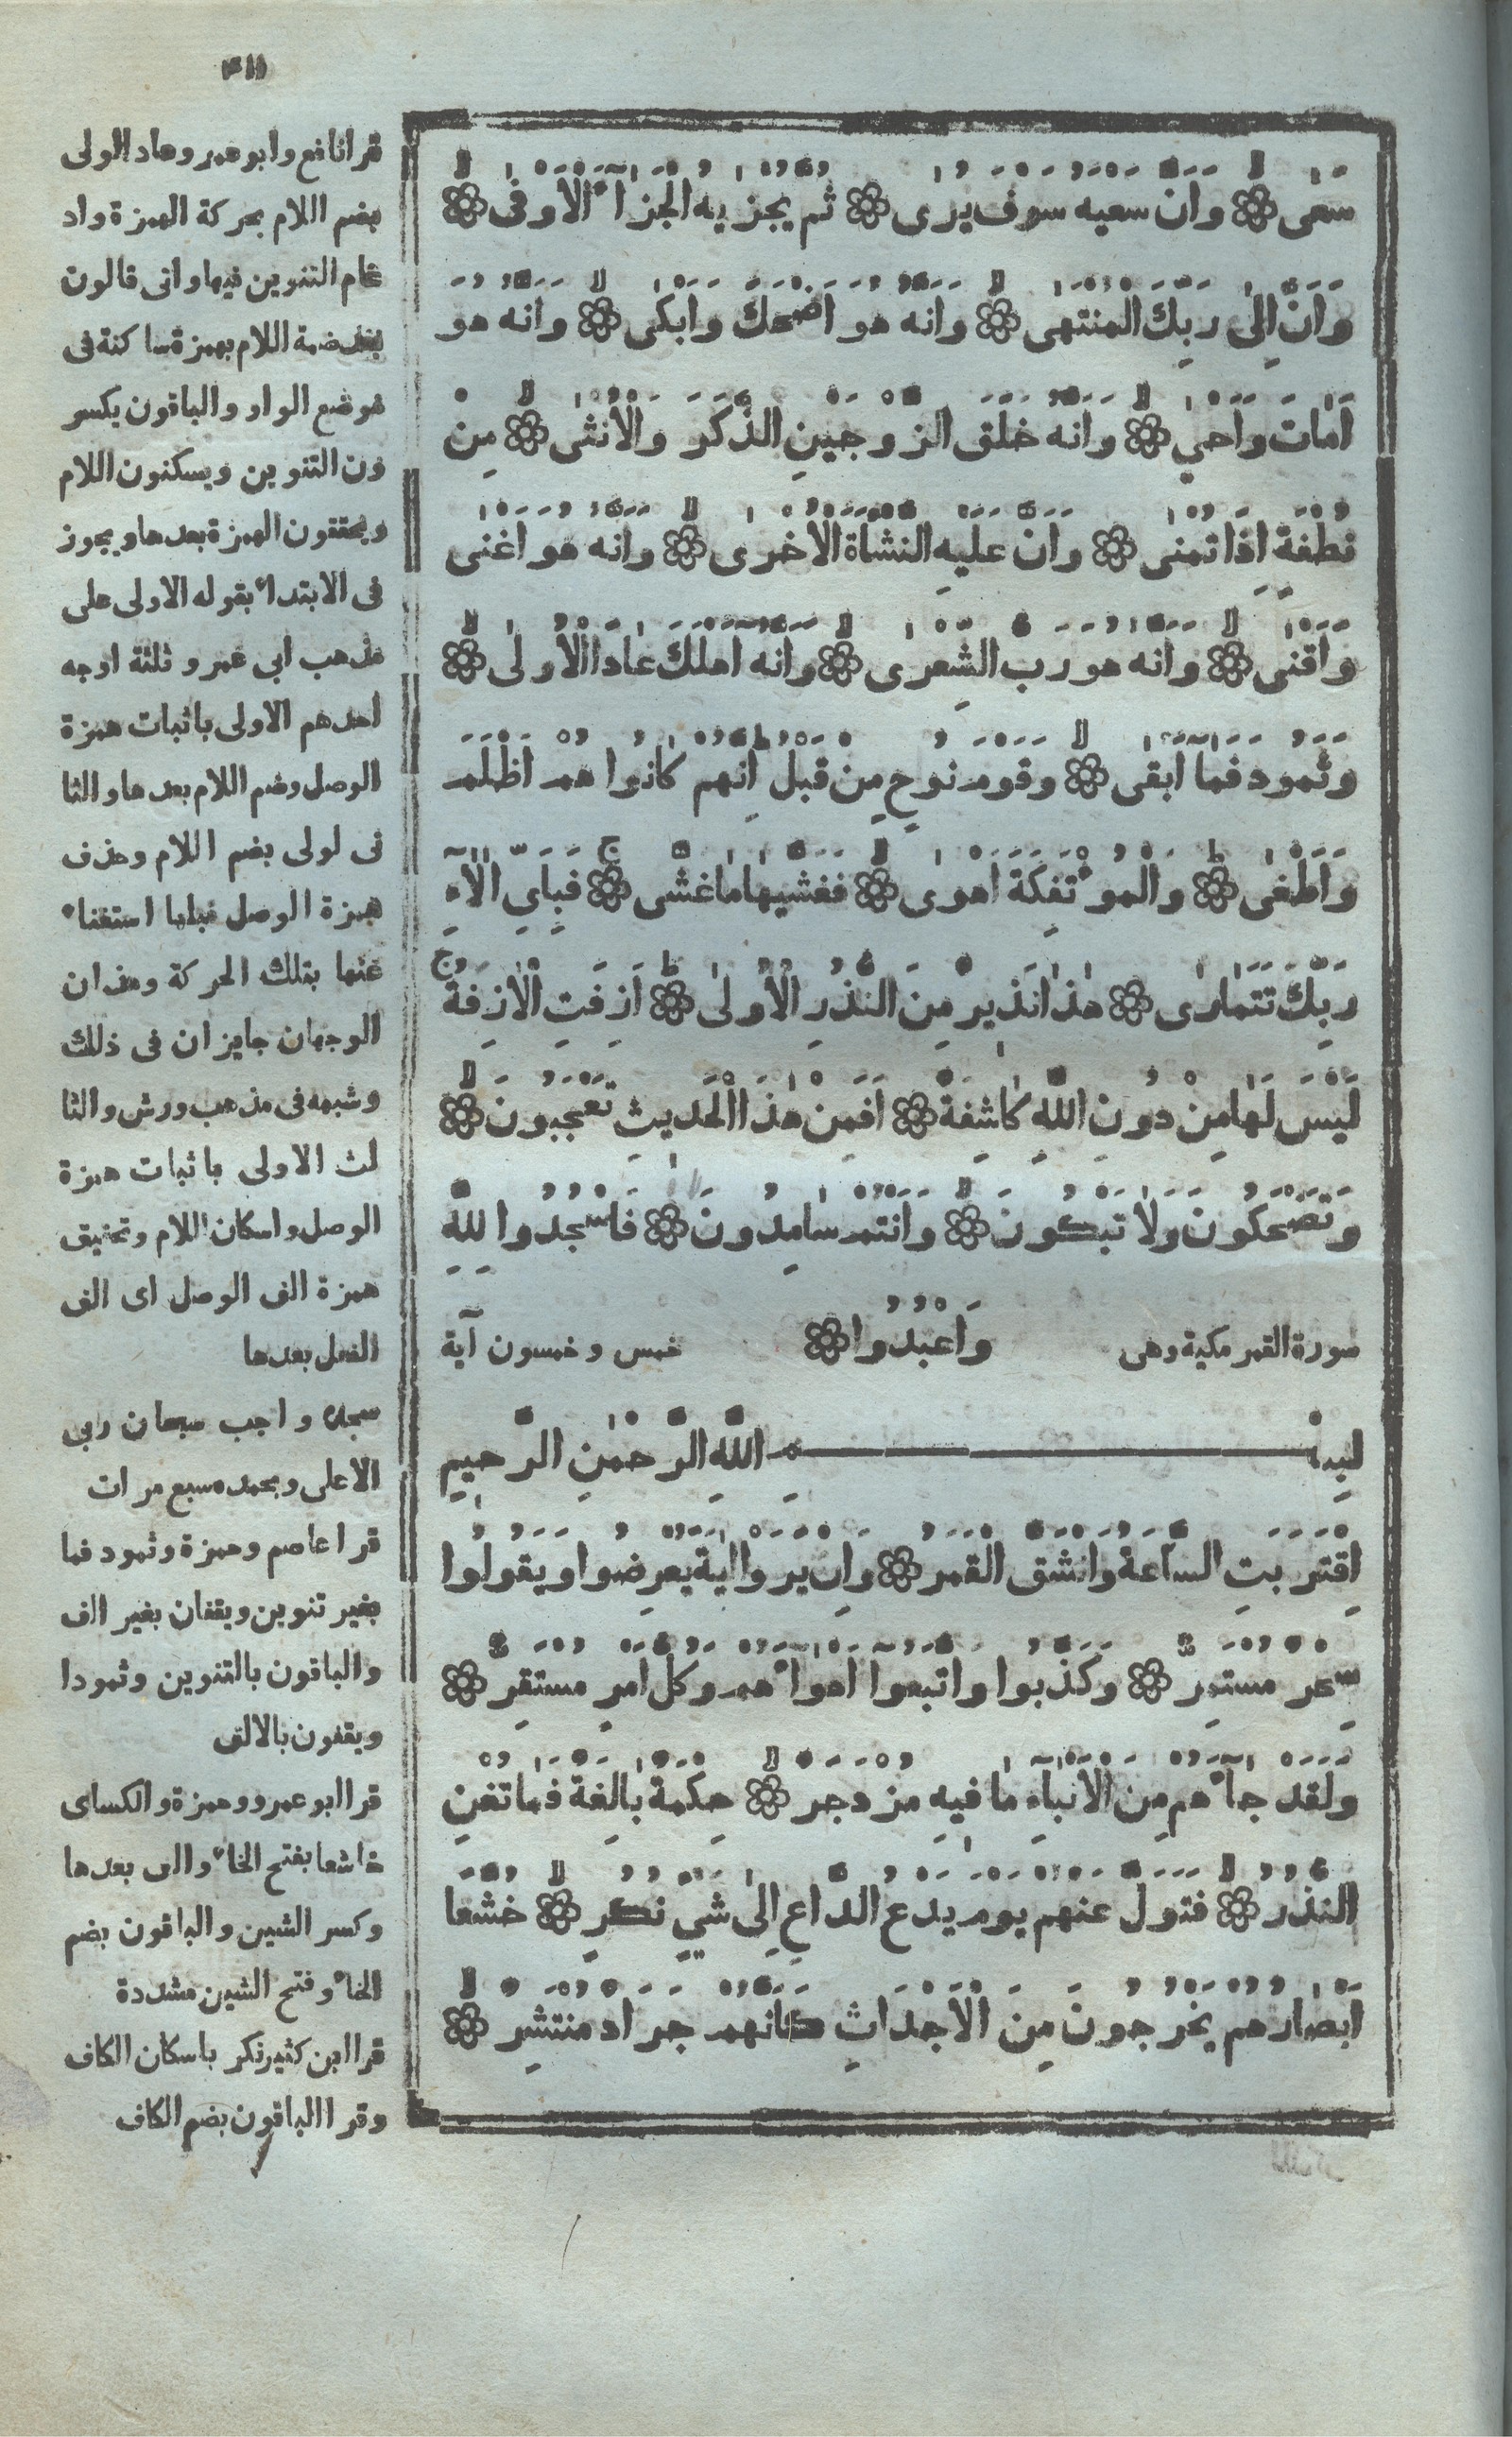 ٤١١
سَعٰى ۞ وَاَنَّ سَعْيَهُ سَوْفَ يُرٰى ۞ ثُمَّ يُجْزٰيهُ الْجَزَآءَ الْاَوْفٰى ۞
وَاَنَّ اِلٰى رَبِّكَ الْمُنْتَهٰى ۞ وَاَنَّهُ هُوَ اَضْحَكَ وَاَبْكٰى ۞ وَاَنَّهُ هُوَ
اَمَاتَ وَاَحْيٰ ۞ وَاَنَّهُ خَلَقَ الزَّوْجَيْنِ الذَّكَرَ وَالْاُنْثٰى ۞ مِنْ
نُطْفَةٍ اِذَا تُمْنٰى ۞ وَاَنَّ عَلَيْهِ النَّشْاَةَ الْاُخْرٰى ۞ وَاَنَّهُ هُوَ اَغْنٰى
وَاَقْنٰى ۞ وَاَنَّهُ هُوَ رَبُّ الشِّعْرٰى ۞ وَاَنَّهُ اَهْلَكَ عَادًا الْاُولٰى ۞
وَثَمُودَ فَمَا اَبْقٰى ۞ وَقَوْمَ نُوحٍ مِنْ قَبْلُ اِنَّهُمْ كَانُوا هُمْ اَظْلَمَ
وَاَطْغٰى ۞ وَالْمُؤْتَفِكَةَ اَهْوٰى ۞ فَغَشّٰيهَا مَا غَشّٰى ۞ فَبِاَيِّ اٰلَآءِ
رَبِّكَ تَتَمَارٰى ۞ هٰذَا نَذِيرٌ مِنَ النُّذُرِ الْاُولٰى ۞ اَزِفَتِ الْاٰزِفَةُ
لَيْسَ لَهَا مِنْ دُونِ اللّٰهِ كَاشِفَةٌ ۞ اَفَمِنْ هٰذَا الْحَدِيثِ تَعْجَبُونَ ۞
وَتَضْحَكُونَ وَلَا تَبْكُونَ ۞ وَاَنْتُمْ سَامِدُونَ ۞ فَاسْجُدُوا لِلّٰهِ
وَاعْبُدُوا ۞
سورة القمر مكية وهى خمس وخمسون آية
بِسْمِ اللّٰهِ الرَّحْمٰنِ الرَّحِيمِ
اِقْتَرَبَتِ السَّاعَةُ وَانْشَقَّ الْقَمَرُ ۞ وَاِنْ يَرَوْا اٰيَةً يُعْرِضُوا وَيَقُولُوا
سِحْرٌ مُسْتَمِرٌّ ۞ وَكَذَّبُوا وَاتَّبَعُوآ اَهْوَآءَهُمْ وَكُلُّ اَمْرٍ مُسْتَقِرٌّ ۞
وَلَقَدْ جَآءَهُمْ مِنَ الْاَنْبَآءِ مَا فِيهِ مُزْدَجَرٌ ۞ حِكْمَةٌ بَالِغَةٌ فَمَا تُغْنِ
النُّذُرُ ۞ فَتَوَلَّ عَنْهُمْ يَوْمَ يَدْعُ الدَّاعِ اِلٰى شَيْءٍ نُكُرٍ ۞ خُشَّعًا
اَبْصَارُهُمْ يَخْرُجُونَ مِنَ الْاَجْدَاثِ كَاَنَّهُمْ جَرَادٌ مُنْتَشِرٌ ۞
قرا نافع وابو عمرو عاد الولى
بضم اللام بحركة الهمزة واد
غام التنوين فيها واتى قالون
بعد ضمة اللام بهمزة ساكنة فى
موضع الواو والباقون يكسر
ون التنوين ويسكنون اللام
ويحققون الهمزة بعدها ويجوز
فى الابتداء بقوله الاولى على
مذهب ابى عمرو ثلثة اوجه
احدهم الاولى باثبات همزة
الوصل وضم اللام بعدها والثا
نى لولى بضم اللام وحذف
همزة الوصل قبلها استغناء
عنها بتلك الحركة وهذان
الوجهان جايزان فى ذلك
وشبهه فى مذهب ورش والثا
لث الاولى باثبات همزة
الوصل واسكان اللام وتحقيق
همزة الف الوصل اى الف
الفعل بعدها
سجده واجب سبحان ربى
الاعلى وبحمده سبع مرات
قرا عاصم وحمزة وثمود فما
بغير تنوين ويقفان بغير الف
والباقون بالتنوين وثمودا
ويقفون بالالف
قرا ابو عمرو وحمزة والكساى
خاشعا بفتح الخاء والف بعدها
وكسر الشين والباقون بضم
الخاء وفتح الشين مشددة
قرا ابن كثير نكر باسكان الكاف
وقرا الباقون بضم الكاف